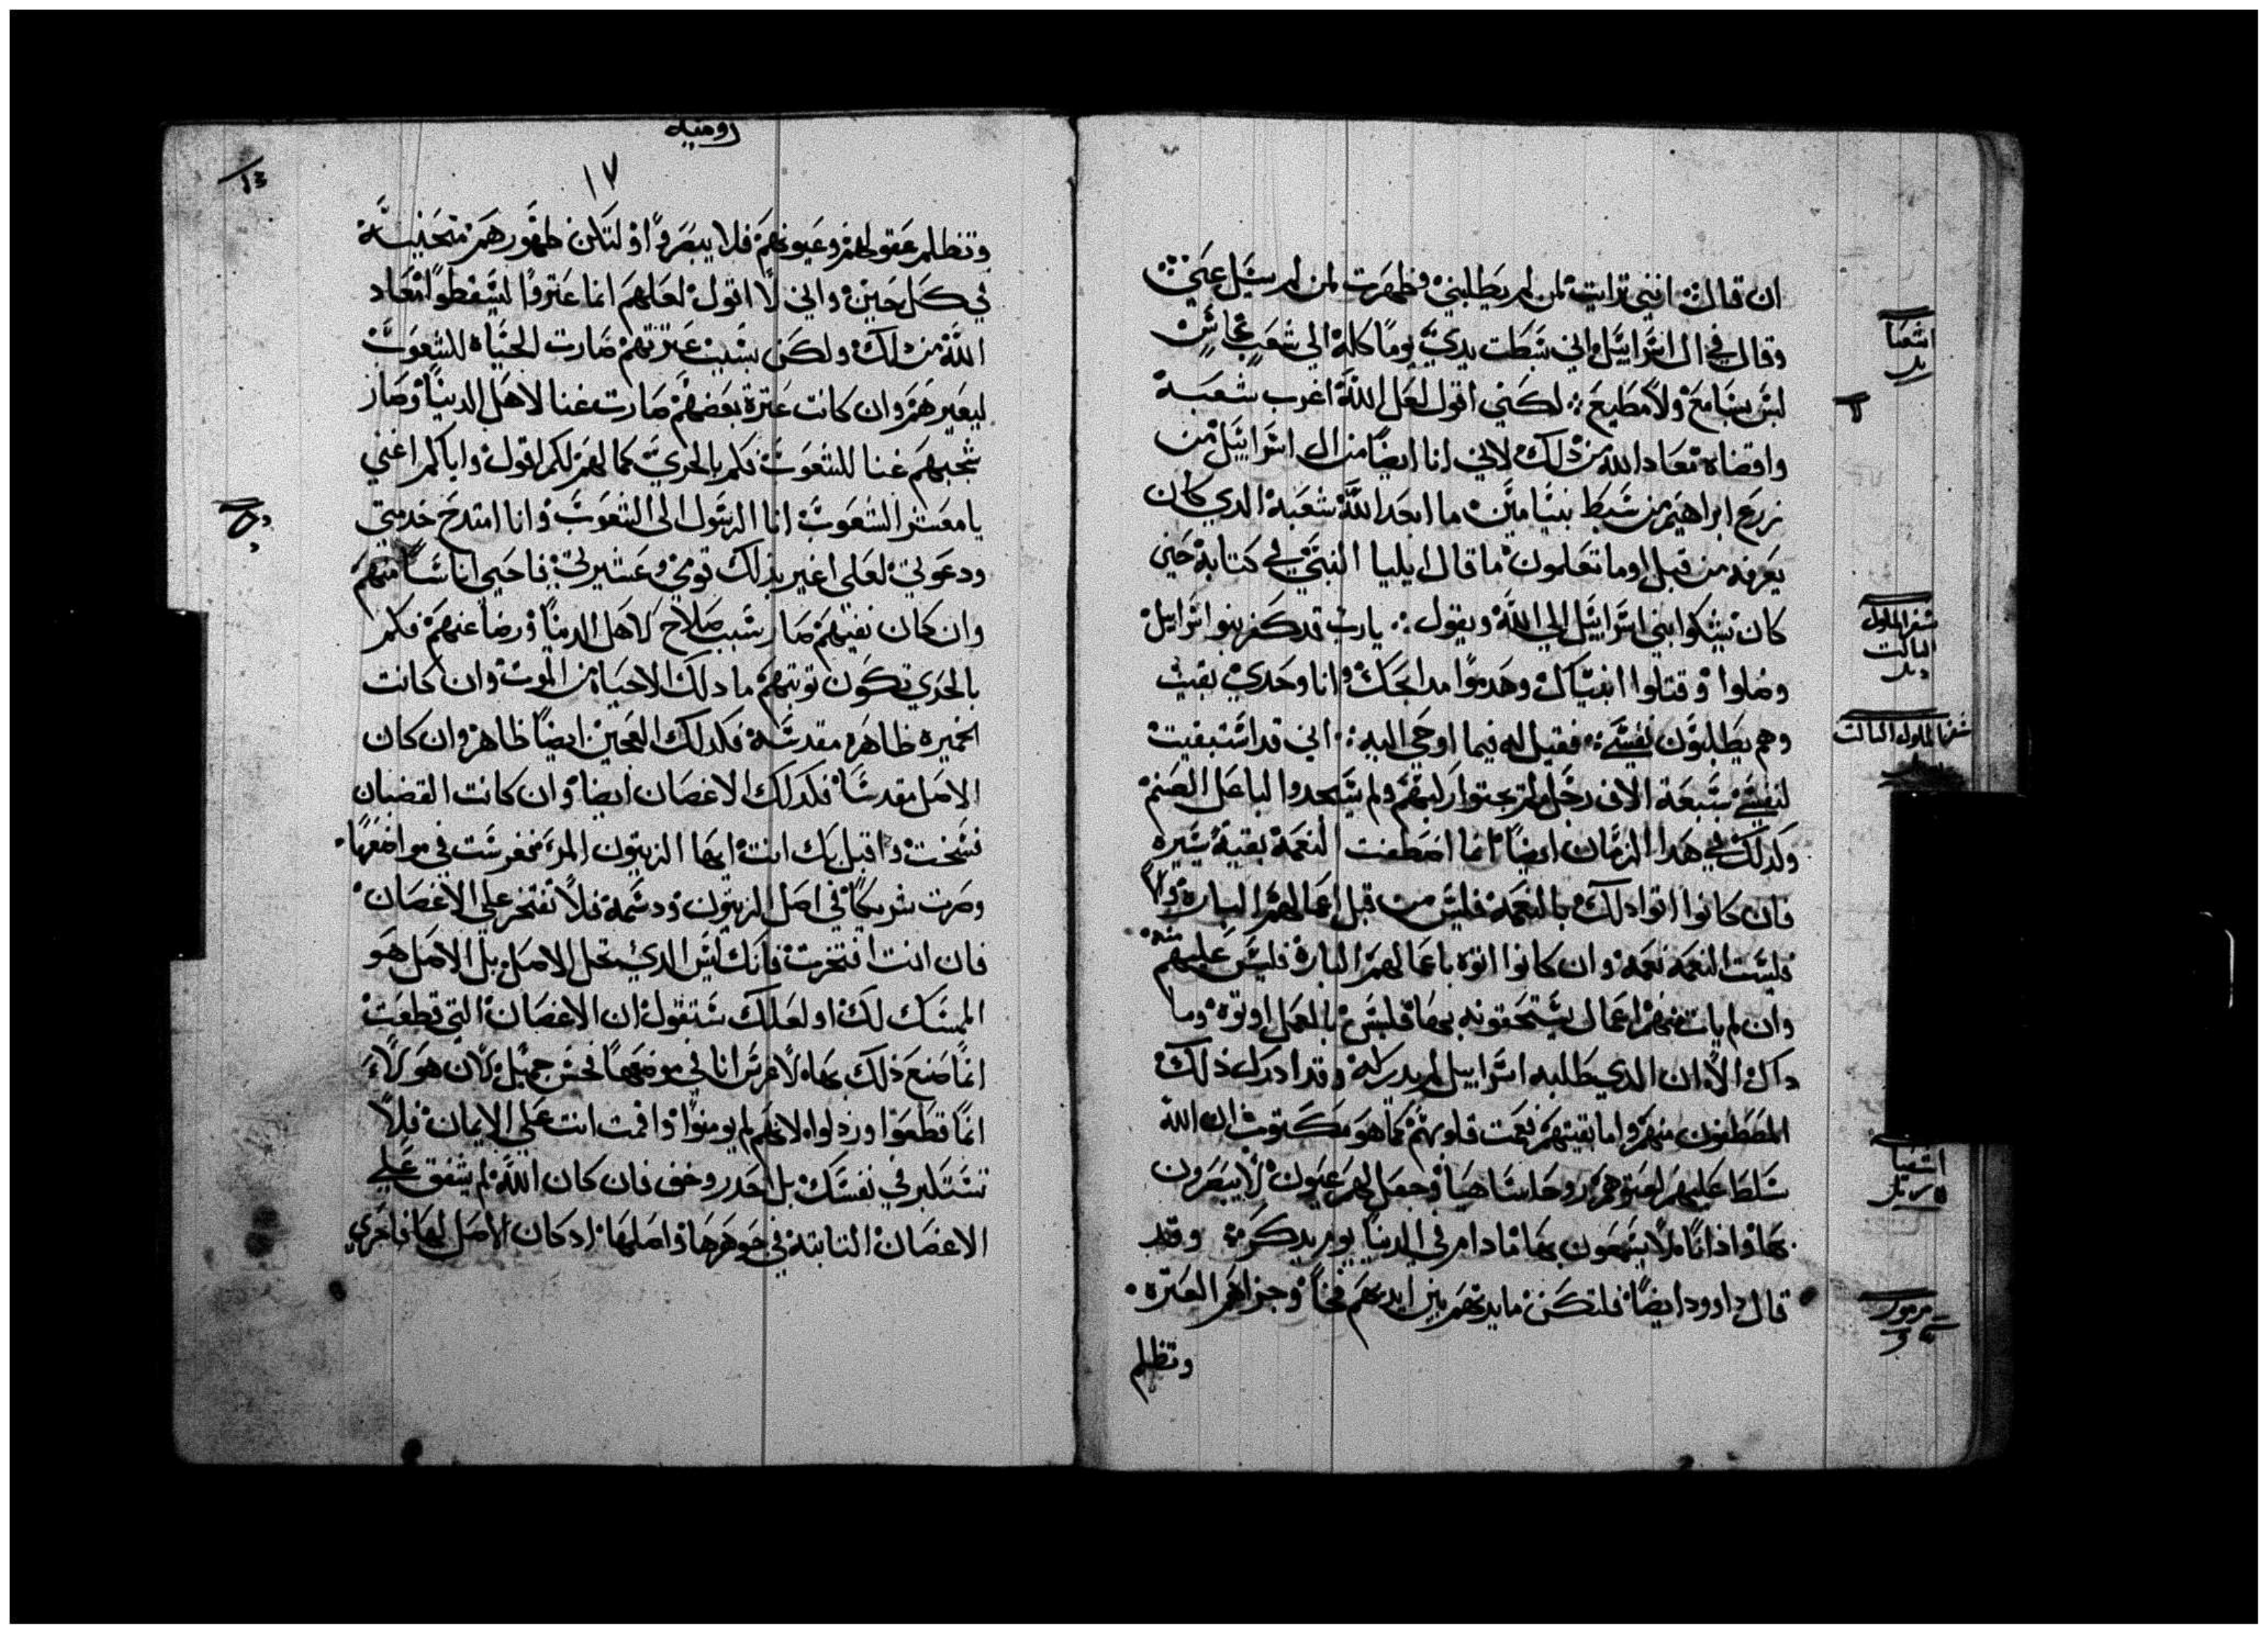 ان قال: انني تراايت لمن لم يطلبني وظهرت لمن لم يسيل عني:
وقال في ال اسراييل اني بسطت يدي يوما كله الي شعب عاص
ليس بسامع ولا مطيع: لكني اقول لعل الله اغرب شعبه
واقصاه معاد الله من ذلك لاني انا ايضا من ال اسراييل من
زرع ابراهيم من سبط بنيامين ما ابعد الله شعبه الدي كان
يعرفه من قبل اوما تعلمون ما قال ايليا النبي في كتابه حين
كان يشكوا بني اسراييل الي الله ويقول: يارب قد كفر بنوا اسراييل
وضلوا وقتلوا انبياك وهدموا مدابحك وانا وحدي بقيت
وهم يطلبون نفسي: فقيل له فيما اوحي اليه: اني قد استبقيت
لنفسي سبعة الاف رجل لم يجتوا ركبهم ولم يسجدوا لباعل الصنم
وكدلك في هدا الزمان ايضا انما اصطفت النعمة بقية يسيره
فان كانوا اتوا دلك بالنعمة فليس من قبل اعمالهم الباره والا
فليست النعمه نعمه وان كانوا اتوه باعمالهم الباره فليس عليهم منه
وان لم يات منهم اعمال يستحقونه بها فليس بالعمل اوتوه وما
داك الا ان الدي طلبه اسراييل لم يدركه وقد ادرك ذلك
المصطفون منهم واما بقيتهم فعميت قلوبهم كما هو مكتوب ان الله
سلط عليهم لعتوهم روحا ساهيا وجعل لهم عيون لا يبصرون
بها واذانا لا يسمعون بها ما دام في الدنيا يوم يدكر: وقد
قال داوود ايضا فلتكن مايدتهم بين ايديهم فخا وجزاهم العتره
وتظلم
اشعيا
سفر الملوك
التالت
سفر الملوك التالت
اشعيا
مزمور
روميه
١٧
وتظلم عقولهم وعيونهم فلا يبصروا ولتكن ظهورهم منحنيه
في كل حين واني لا اقول لعلهم انما عتروا ليسقطوا معاد
الله من دلك ولكن بسبب عترتهم صارت الحياه للشعوب
ليغيرهم وان كانت عترة بعضهم صارت غنا لاهل الدنيا وصار
شجبهم غنا للشعوب فكم بالحري كمالهم لكم اقول واياكم اعني
يا معشر الشعوب انا الرسول الي الشعوب وانا امتدح خدمتي
ودعوتي لعلي اغير بذلك قومي وعشيرتي فاحيي اناسا منهم
وان كان نفيهم صار سبب صلاح لاهل الدنيا ورضا عنهم فكم
بالحري تكون توبتهم ما دلك الا حياه من الموت وان كانت
الخميره طاهره مقدسه فكدلك العجين ايضا طاهر وان كان
الاصل مقدسا فكدلك الاغصان ايضا وان كانت القضبان
فسخت واقبل بك انت ايها الزيتون المر فغرست في مواضعها
وصرت شريكا في اصل الزيتون ودسمه فلا تفتخر علي الاغصان
فان انت افتخرت فانك ليس الدي تحمل الاصل بل الاصل هو
الممسك لك او لعلك ستقول ان الاغصان التي قطعت
انما صنع ذلك بها لاغرس انا في موضعها فحسن جميل لان هولاء
انما قطعوا ورذلوا لانهم لم يومنوا واقمت انت علي الايمان فلا
تستكبر في نفسك بل احدر وخف فان كان الله لم يشفق علي
الاغصان التابته في جوهرها واصلها اد كان الاصل لها فاحري